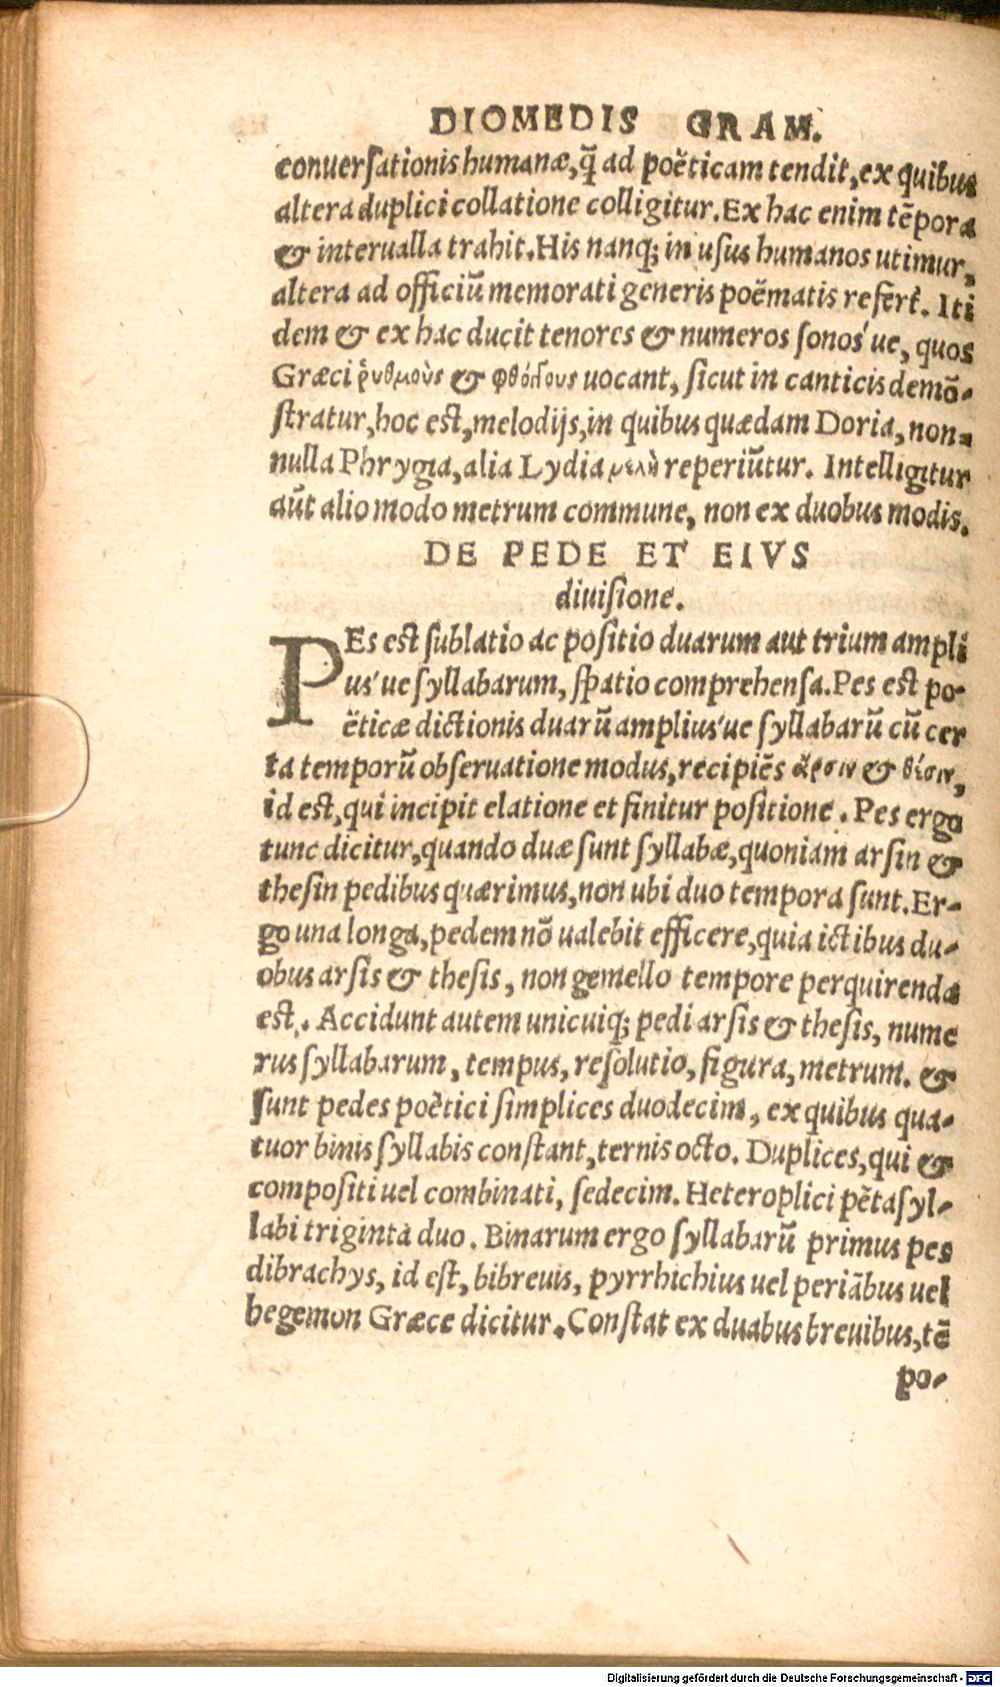 DIOMEDIS GRAM.
conuersationis humanæ, q̃ ad poëticam tendit, ex quibus
altera duplici collatione colligitur. Ex hac enim tẽpora
& interualla trahit. His nanq; in usus humanos utimur,
altera ad officiũ memorati generis poëmatis refert. Iti
dem & ex hac ducit tenores & numeros sonos'ue, quos
Græci ῥυθμοὺς & φθόγγους uocant, sicut in canticis demõ-
stratur, hoc est, melodijs, in quibus quædam Doria, non-
nulla Phrygia, alia Lydia μελὴ reperiũtur. Intelligitur
aũt alio modo metrum commune, non ex duobus modis.
DE PEDE ET EIVS
diuisione.
PEs est sublatio ac positio duarum aut trium ampli
us'ue syllabarum, spatio comprehensa. Pes est po-
ëticæ dictionis duarũ amplius'ue syllabarũ cũ cer
ta temporũ obseruatione modus, recipiẽs ἄρσιν & θέσιν,
id est, qui incipit elatione et finitur positione. Pes ergo
tunc dicitur, quando duæ sunt syllabæ, quoniam arsin &
thesin pedibus quærimus, non ubi duo tempora sunt. Er-
go una longa, pedem nõ ualebit efficere, quia ictibus du-
obus arsis & thesis, non gemello tempore perquirenda
est. Accidunt autem unicuiq; pedi arsis & thesis, nume
rus syllabarum, tempus, resolutio, figura, metrum. &
sunt pedes poëtici simplices duodecim, ex quibus qua-
tuor binis syllabis constant, ternis octo. Duplices, qui &
compositi uel combinati, sedecim. Heteroplici pẽtasyl-
labi triginta duo. Binarum ergo syllabarũ primus pes
dibrachys, id est, bibreuis, pyrrhichius uel periãbus uel
hegemon Græce dicitur. Constat ex duabus breuibus, tẽ
po-
Digitalisierung gefördert durch die Deutsche Forschungsgemeinschaft - DFG